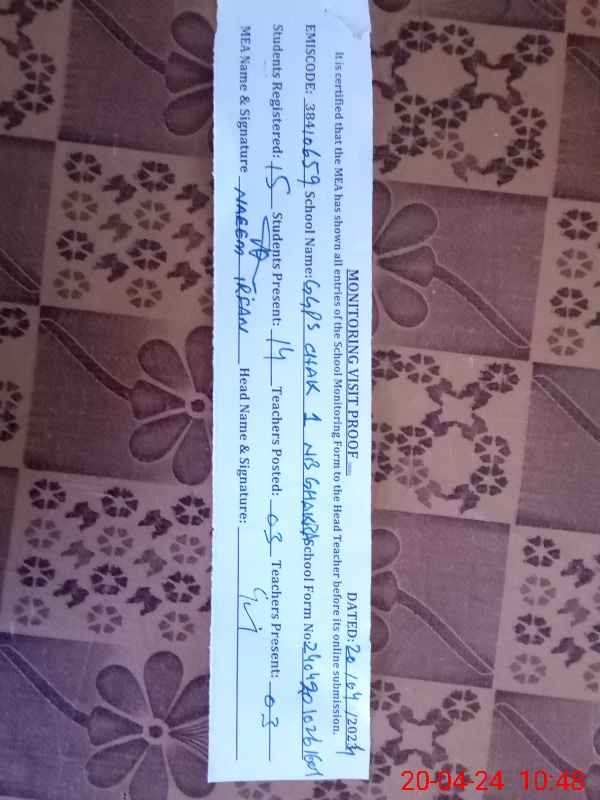 MONITORING VISIT PROOF DATED: 20/04/2024
It is certified that the MEA has shown all entries of the School Monitoring Form to the Head Teacher before its online submission.
EMISCODE: 38410659 School Name: GGPS CHAK 1 NB School Form No:
Students Registered: 15 Students Present: 14 Teachers Posted: 03 Teachers Present: 03
MEA Name & Signature NAEEM IRFAN Head Name & Signature:
20-04-24 10:48